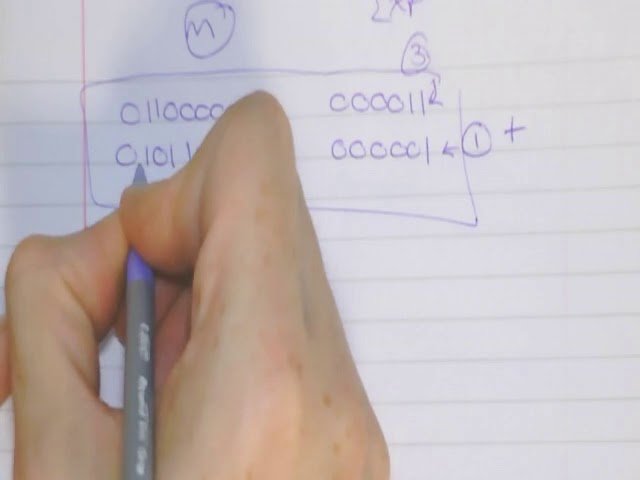 EXP
m
3
0110000 000011
01011 000001 ← 1 +